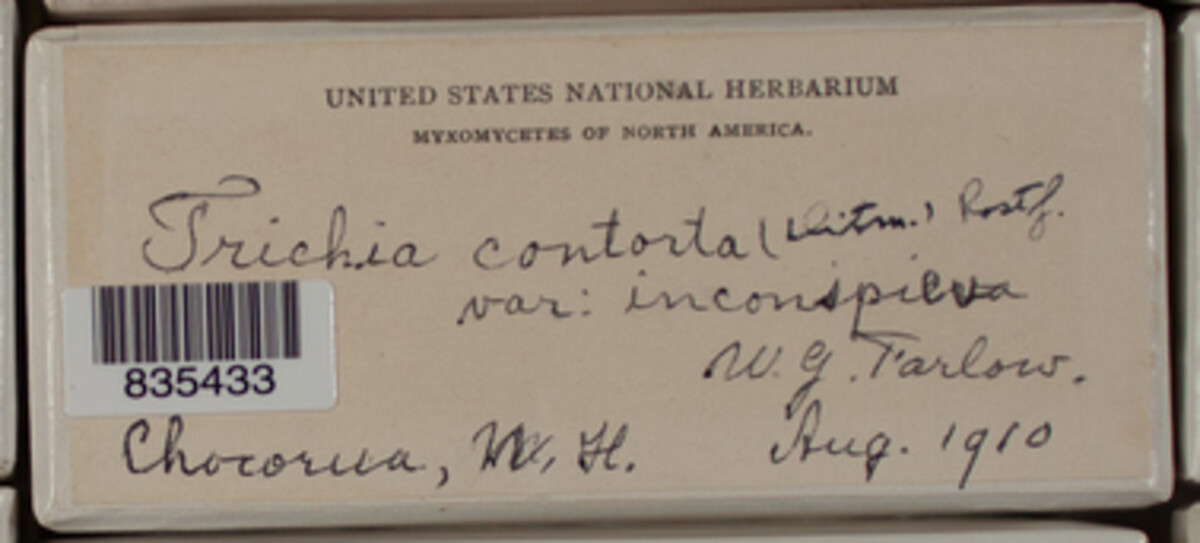 UNITED STATES NATIONAL HERBARIUM
MYXOMYCETES OF NORTH AMERICA.
Trichia contorta (Ditm.) Rostf.
var: inconspicua
W. G. Farlow.
835433
Chocorua, N. H. Aug. 1910